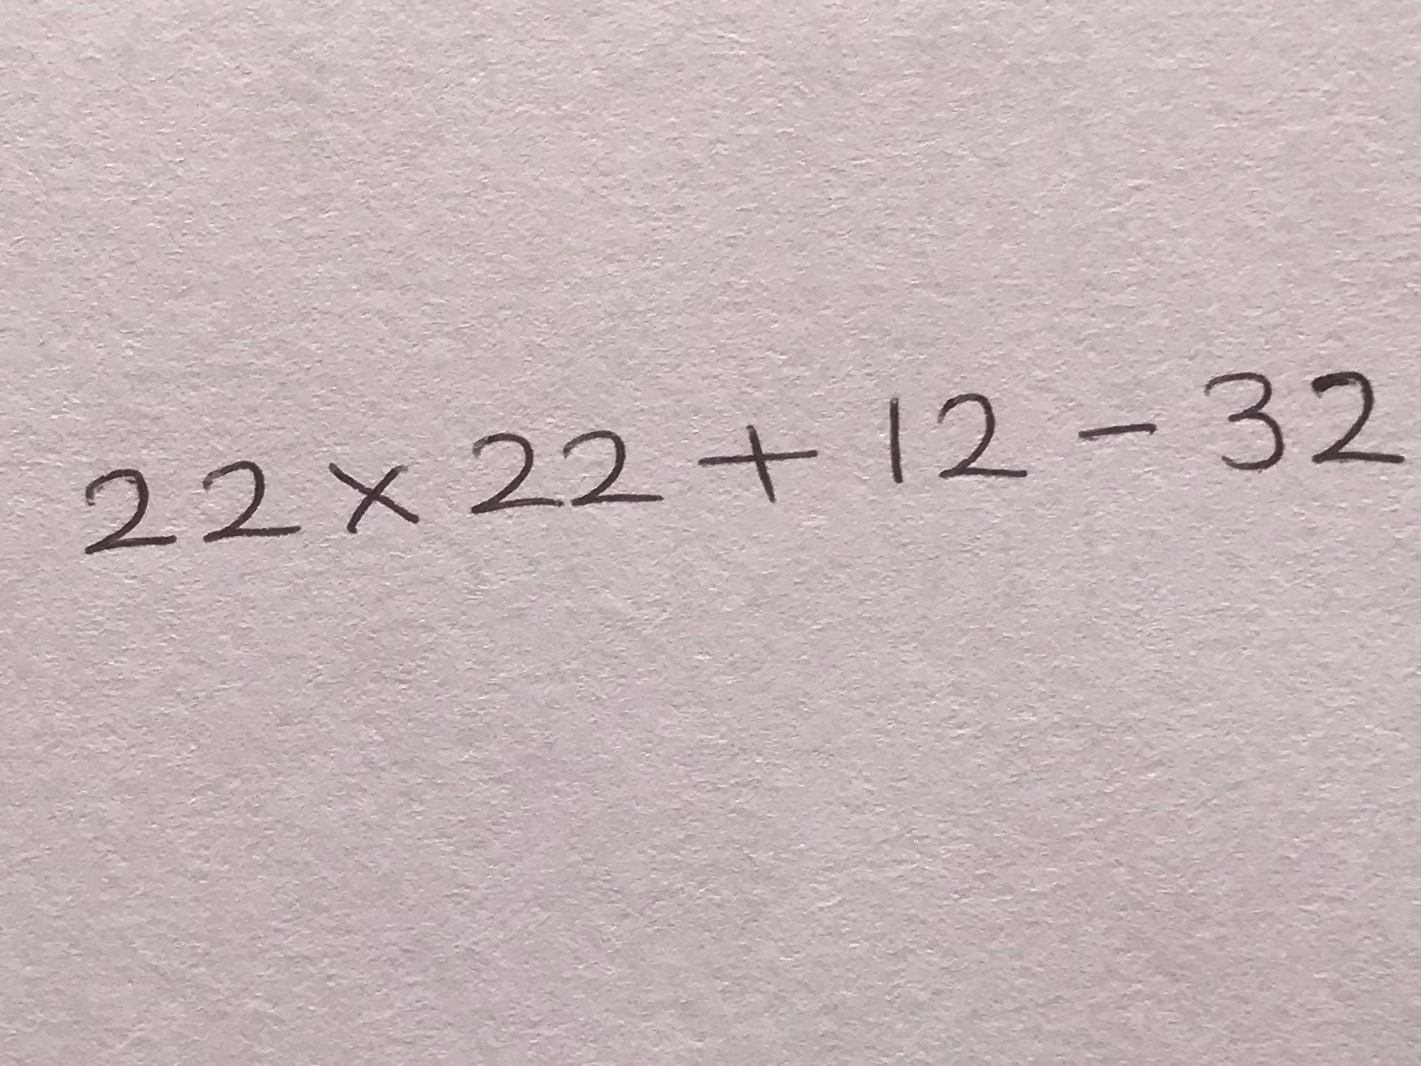 22 × 22 + 12 - 32